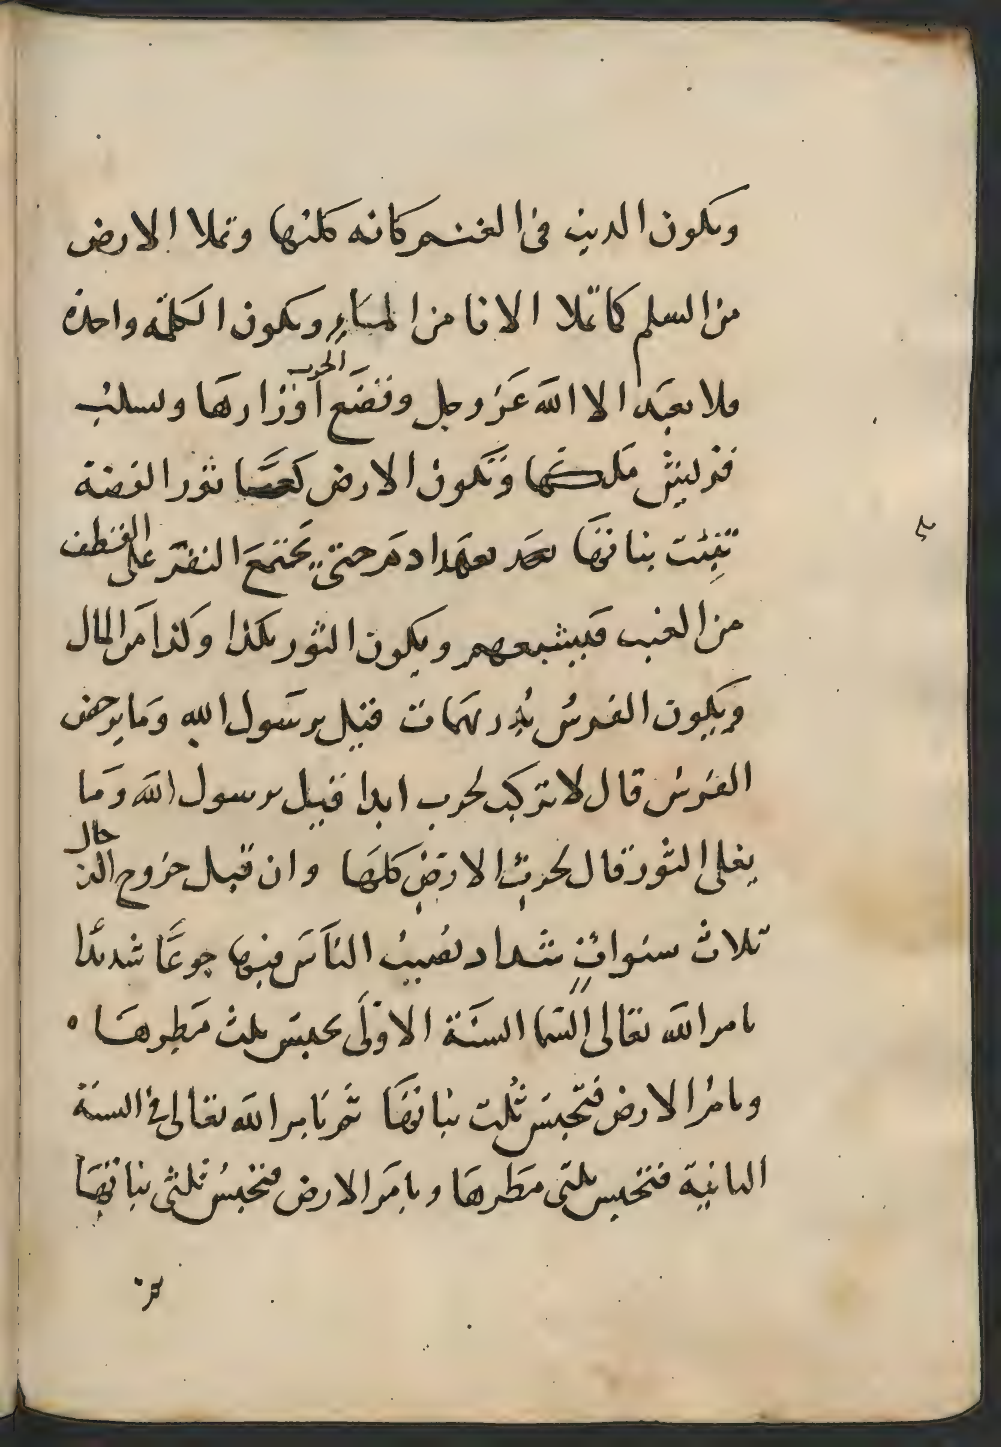 ويكون الديب في الغنم كانه كلبها وتملا الارض
من السلم كما تملا الانا من الماء ويكون الكلمة واحدة
فلا يعبد الا الله عز وجل وتضع الحرب اوزارها وتسلب
قريش ملكها وتكون الارض كعصا ثور الفضة
تنبت بناتها بعهد ادم حتى يجتمع النفر على القطف
من العنب فيشبعهم ويكون الثور بكذا وكذا من المال
ويكون الفرس بدريهمات قيل يرسول الله وما يرخص
الفرس قال لا تركب لحرب ابدا قيل يرسول الله وما
يغلي الثور قال لحرث الارض كلها وان قبل خروج الدجال
ثلاث سنوات شداد تصيب الناس فيها جوعا شديدا
يامر الله تعالى السما السنة الاولى بحبس ثلث مطرها
ويامر الارض فتحبس ثلث نباتها ثم يامر الله تعالى في السنة
الثانية فتحبس ثلثى مطرها ويامر الارض فتحبس ثلثى نباتها